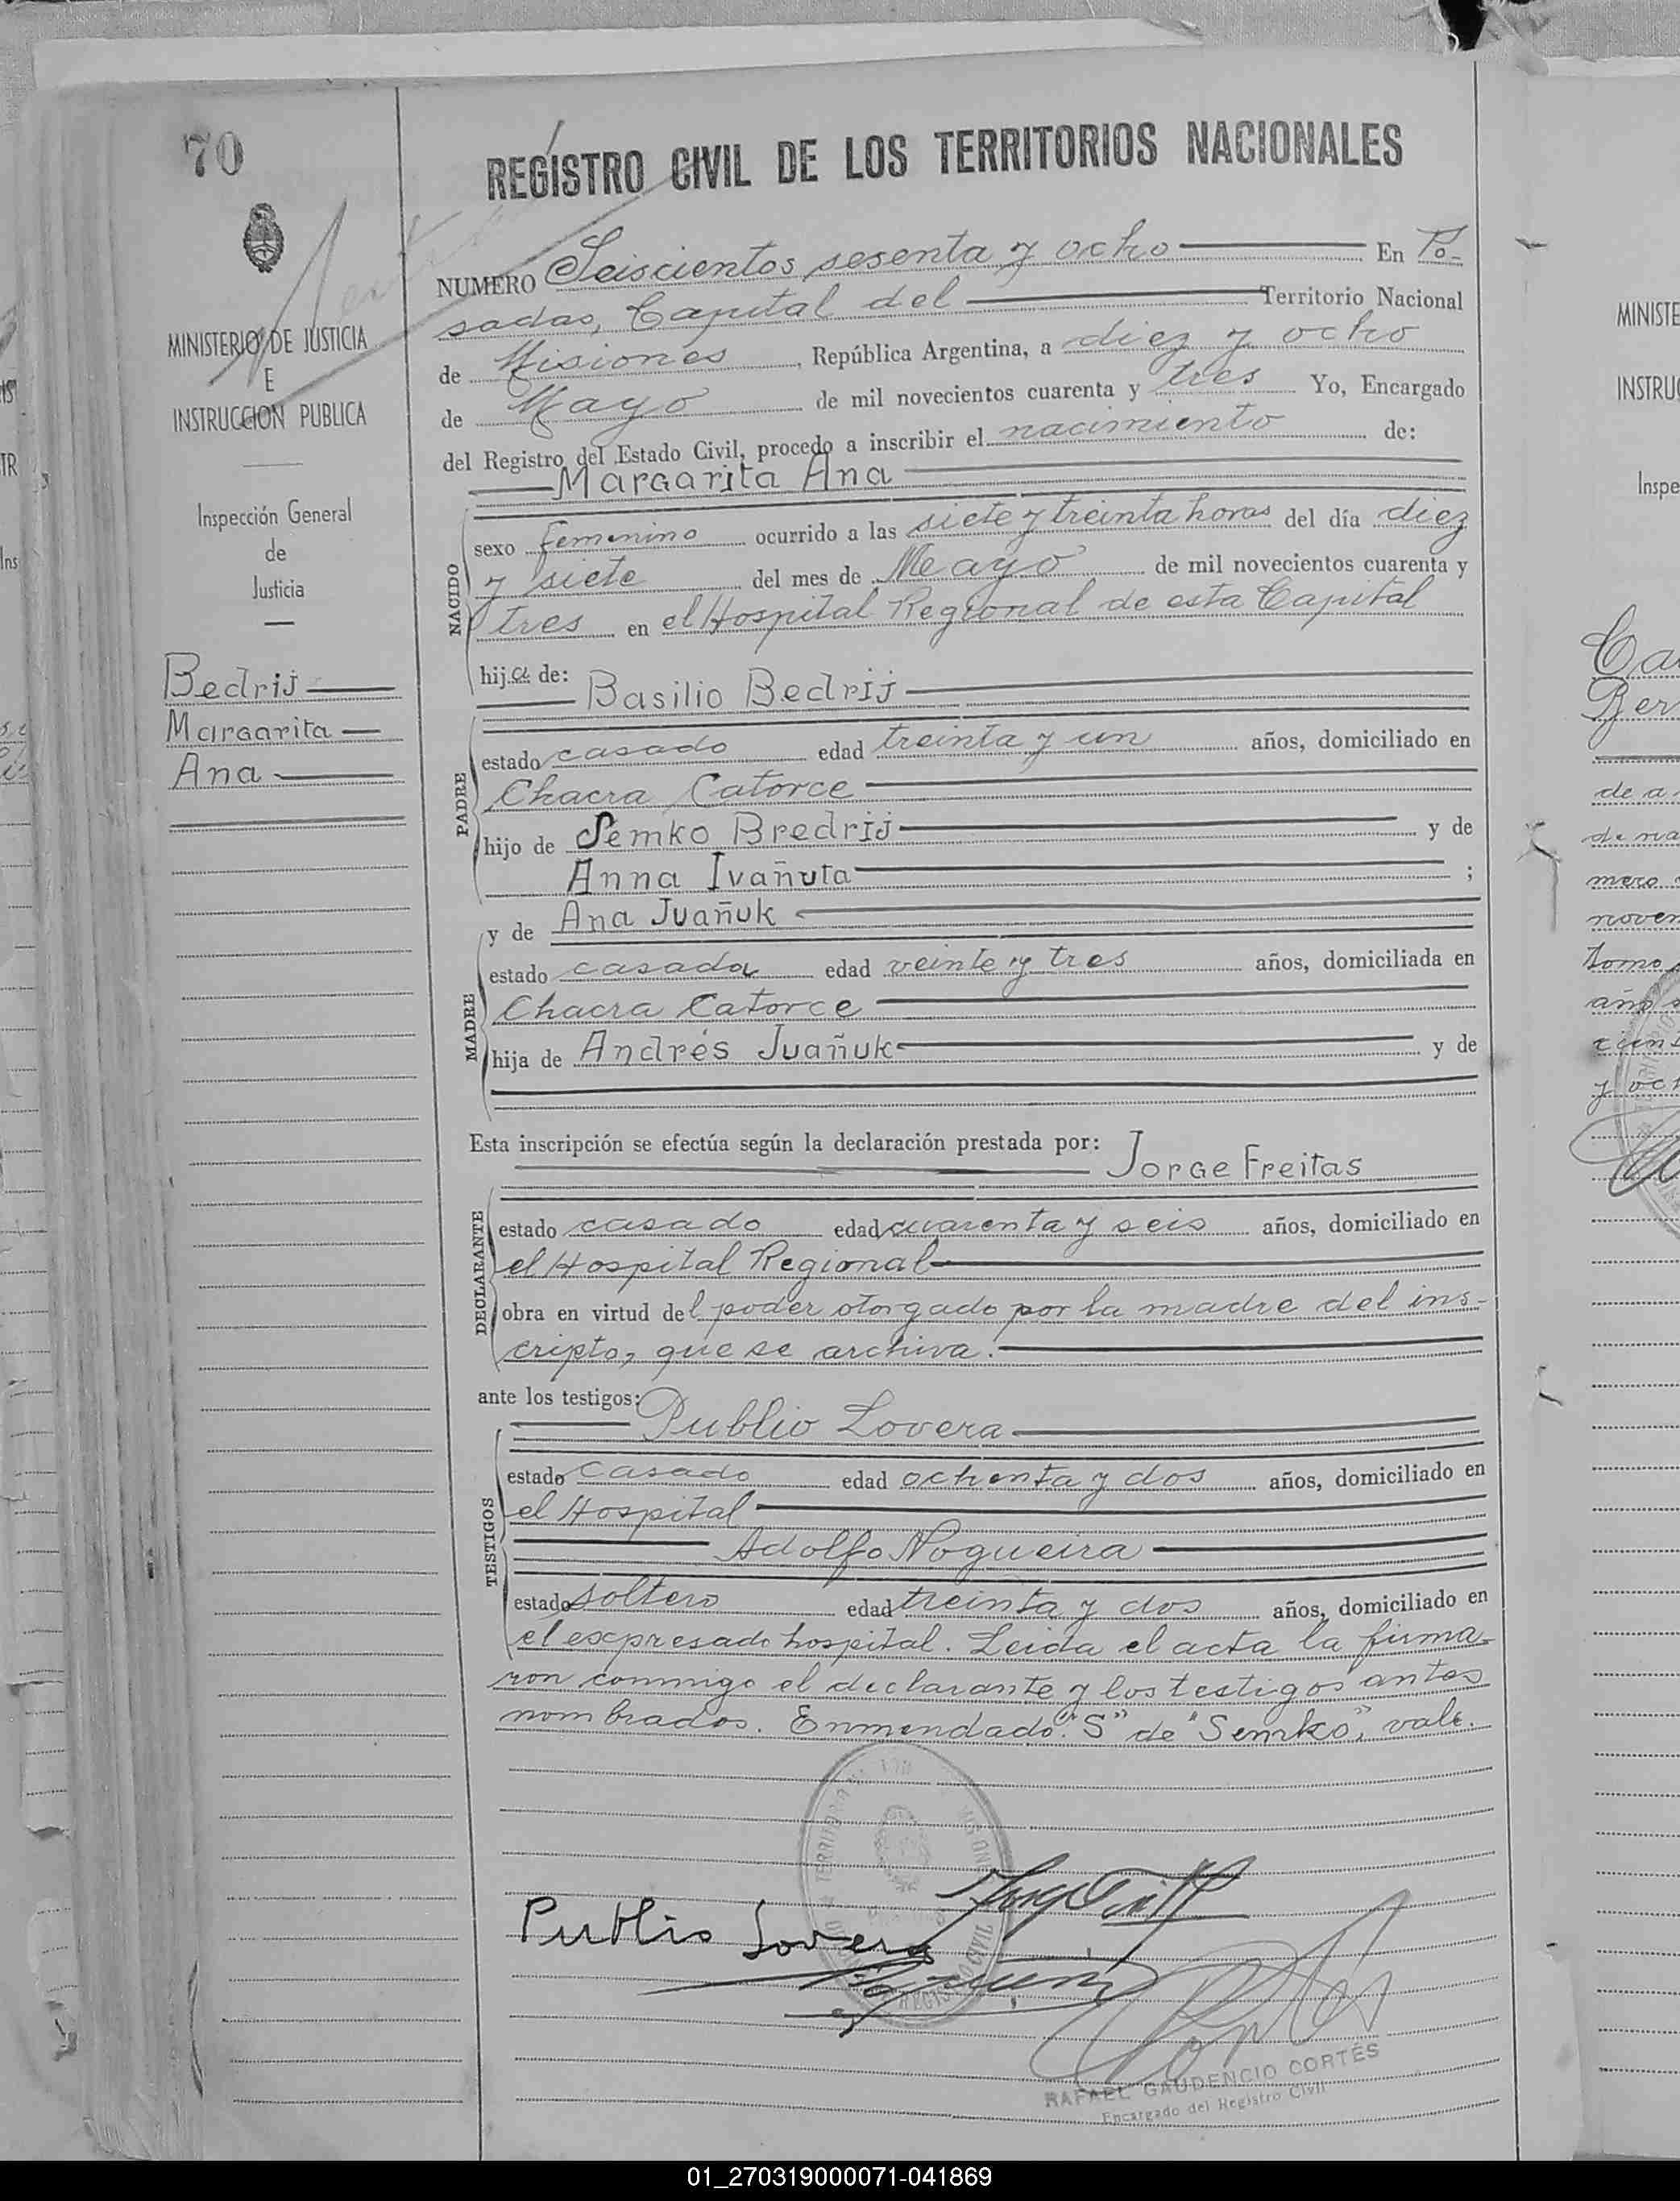 70
REGISTRO CIVIL DE LOS TERRITORIOS NACIONALES
NUMERO Seiscientos sesenta y ocho En Po-
sadas, Capital del Territorio Nacional
de Misiones, República Argentina, a diez y ocho
de Mayo de mil novecientos cuarenta y tres Yo, Encargado
del Registro del Estado Civil, procedo a inscribir el nacimiento de:
Margarita Ana
MINISTERIO DE JUSTICIA
E
INSTRUCCION PUBLICA
Inspección General
de
Justicia
Bedrij
Margarita
Ana
NACIDO
sexo femenino ocurrido a las siete y treinta horas del día diez
y siete del mes de Mayo de mil novecientos cuarenta y
tres en el Hospital Regional de esta Capital
hija de:
Basilio Bedrij
PADRE
estado casado edad treinta y un años, domiciliado en
Chacra Catorce
hijo de Semko Bredrij y de
Anna Ivañuta ;
y de Ana Juañuk
MADRE
estado casada edad veinte y tres años, domiciliada en
Chacra Catorce
hija de Andrés Juañuk y de
Esta inscripción se efectúa según la declaración prestada por:
Jorge Freitas
DECLARANTE
estado casado edad cuarenta y seis años, domiciliado en
el Hospital Regional
obra en virtud del poder otorgado por la madre del ins-
cripto, que se archiva.
ante los testigos:
Publio Lovera
TESTIGOS
estado casado edad ochenta y dos años, domiciliado en
el Hospital
Adolfo Nogueira
estado soltero edad treinta y dos años, domiciliado en
el expresado hospital. Leida el acta la firma-
ron conmigo el declarante y los testigos antes
nombrados. Enmendado: "S" de "Semko", vale.
Publio Lovera
RAFAEL GAUDENCIO CORTÉS
Encargado del Registro Civil
MINISTE
INSTRUC
Inspe
de a
mero
noven
tomo
año
y och
01_270319000071-041869